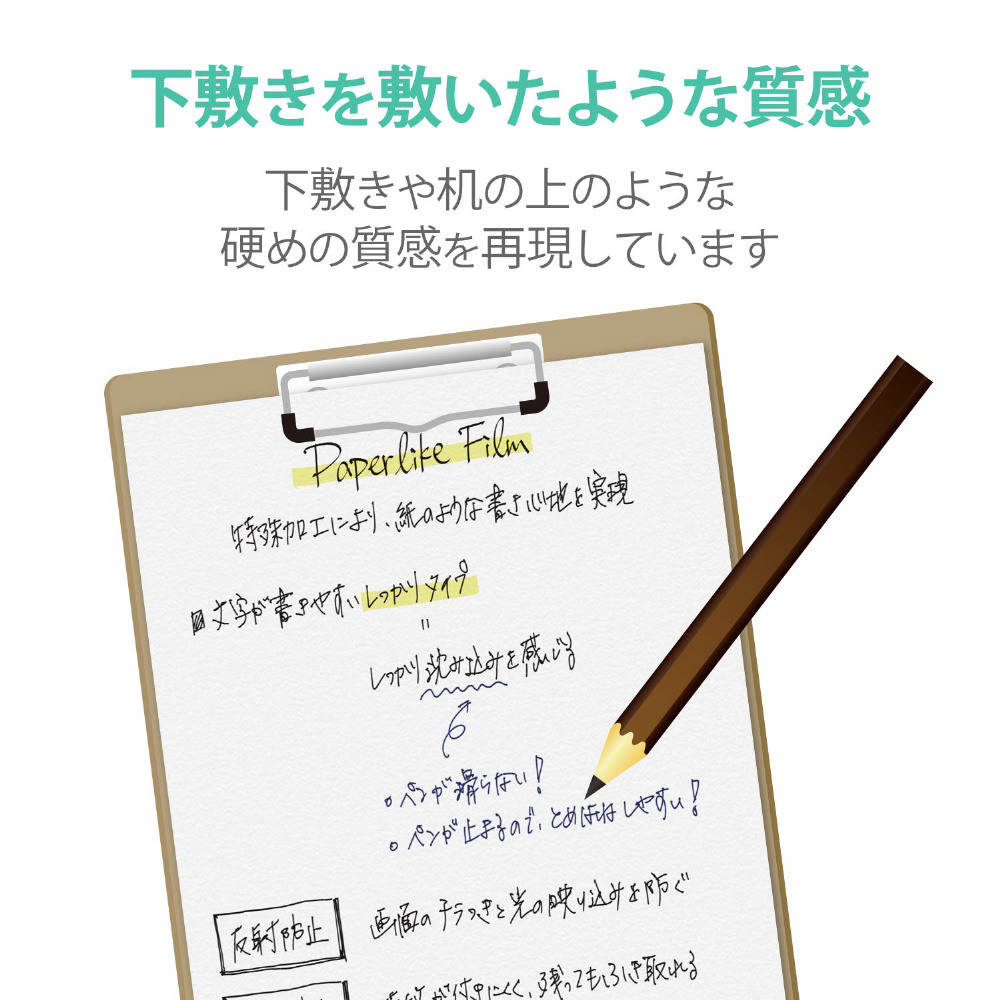 下敷きを敷いたような質感
下敷きや机の上のような
硬めの質感を再現しています
Paperlike Film
特殊加工により、紙のような書き心地を実現
文字が書きやすいしっかりタイプ
"
しっかり沈み込みを感じる
○ ペンが滑らない!
○ ペンが止まるので、とめはねはしやすい!
反射防止 画面のチラつきと光の映り込みを防ぐ
が付きにくく、残ってもふき取れる